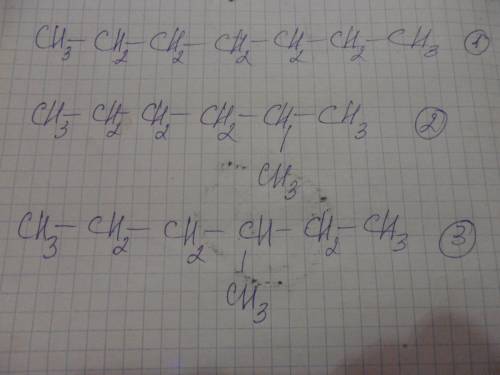 CH₃—CH₂—CH₂—CH₂—CH₂—CH₂—CH₃ ①
CH₃—CH₂—CH₂—CH₂—CH—CH₃ ②
CH₃
CH₃—CH₂—CH₂—CH—CH₂—CH₃ ③
CH₃